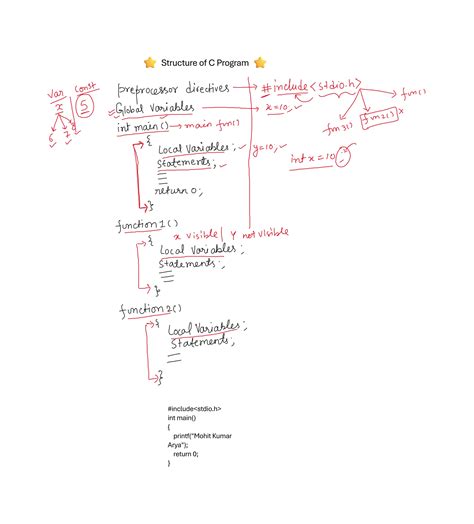 Structure of C Program
Var Const
x 5
6 7 9
preprocessor directives → #include<stdio.h>
fun()
fun2() x
fun3()
Global Variables → x=10,
int main() → main fun()
{
Local Variables; y=10,
Statements;
int x=10;
return 0;
}
function1()
x visible / Y not visible
{
Local Variables;
Statements;
function2()
{
Local Variables;
Statements;
}
#include<stdio.h>
int main()
{
printf("Mohit Kumar
Arya");
return 0;
}